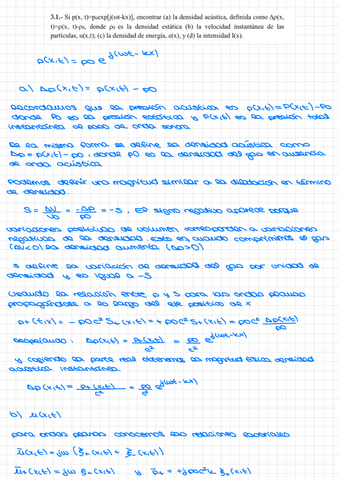 3.1.- Si p(x, t)=p₀exp[j(ωt-kx)], encontrar (a) la densidad acústica, definida como Δρ(x,
t)=ρ(x, t)-ρ₀, donde ρ₀ es la densidad estática (b) la velocidad instantánea de las
partículas, u(x,t); (c) la densidad de energía, e(x), y (d) la intensidad I(x).
p(x,t) = p0 e^j(ωt-kx)
a) Δρ(x,t) = ρ(x,t) - ρ0
Recordamos que la presión acústica es p(x,t) = P(x,t) - P0
donde P0 es la presión estática y P(x,t) es la presión total
instantánea al paso de onda sonora.
De la misma forma se define la densidad acústica como
Δρ = ρ(x,t) - ρ0; donde ρ0 es la densidad del gas en ausencia
de onda acústica.
Podemos definir una magnitud similar a la dilatación en término
de densidad.
S = ΔV/V0 = -Δρ/ρ0 = -s. El signo negativo aparece porque
variaciones positivas de volumen corresponden a variaciones
negativas de la densidad. Esto es, cuando comprimimos el gas
(ΔV<0) la densidad aumenta (Δρ>0)
s define la variación de densidad del gas por unidad de
densidad y es igual a -S
Usando la relación entre p y S para las ondas planas
propagándose a lo largo del eje positivo de x
p+(t,x) = -ρ0c² S+(x,t) = +ρ0c² s+(x,t) = ρ0c² Δρ(x,t)/ρ0
despejando: Δρ(x,t) = p+(x,t)/c² = p0/c² e^j(ωt-kx)
y cogiendo la parte real obtenemos la magnitud física densidad
acústica instantánea.
Δρ(x,t) = p+(x,t)/c² = p0/c² e^j(ωt-kx)
b) u(x,t)
para ondas planas conocemos las relaciones
ũ(x,t) = jω (ξ+(x,t) + ξ-(x,t))
ũ+(x,t) = jω ξ+(x,t) y p̃+ = +jρ0c²k ξ+(x,t)